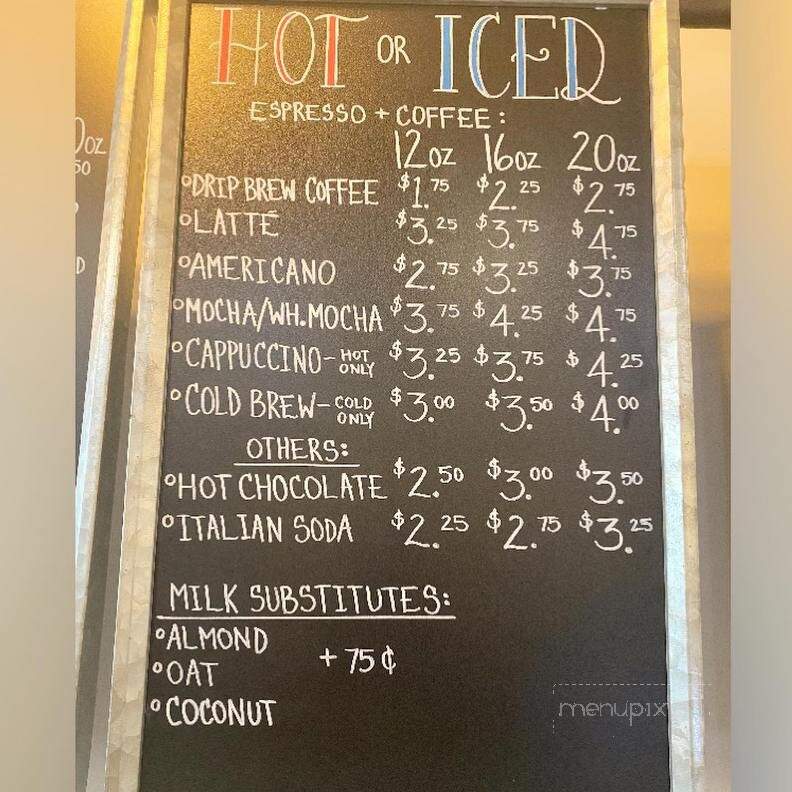 HOT OR ICED
ESPRESSO + COFFEE:
12oz 16oz 20oz
°DRIP BREW COFFEE $1.75 $2.25 $2.75
°LATTÉ $3.25 $3.75 $4.75
°AMERICANO $2.75 $3.25 $3.75
°MOCHA/WH.MOCHA $3.75 $4.25 $4.75
°CAPPUCCINO-HOT ONLY $3.25 $3.75 $4.25
°COLD BREW-COLD ONLY $3.00 $3.50 $4.00
OTHERS:
°HOT CHOCOLATE $2.50 $3.00 $3.50
°ITALIAN SODA $2.25 $2.75 $3.25
MILK SUBSTITUTES:
°ALMOND
+75¢
°OAT
°COCONUT
menupix